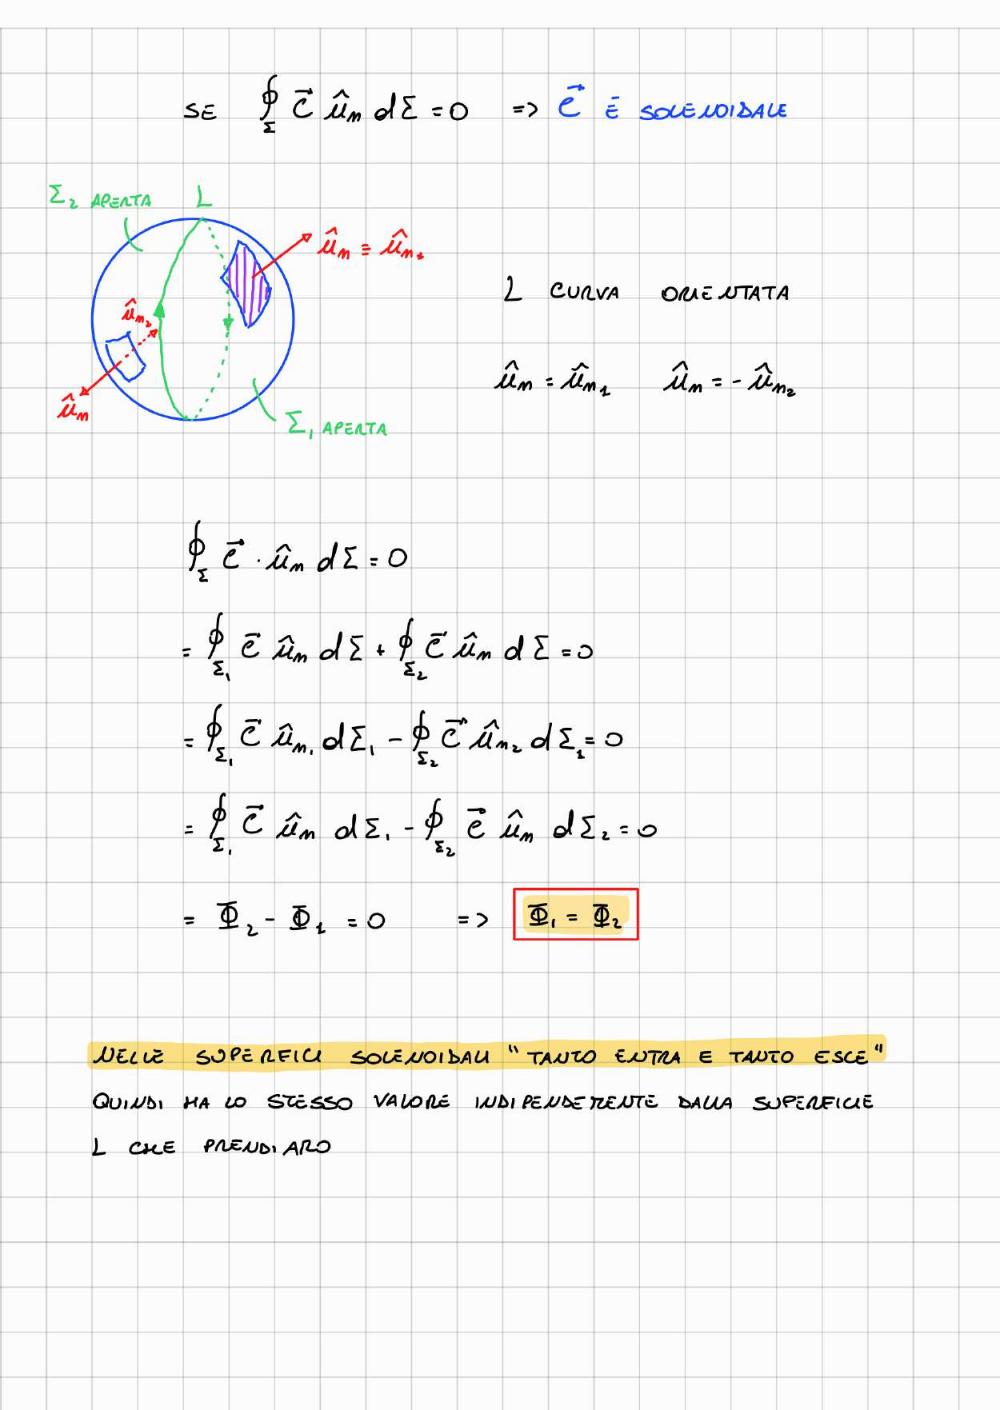 SE ∮_Σ C⃗ û_n dΣ = 0 => C⃗ È SOLENOIDALE
Σ₂ APERTA L
û_n ≡ û_n₁
L CURVA ORIENTATA
û_n₂
û_n = û_n₁ û_n = - û_n₂
û_n
Σ₁ APERTA
∮_Σ C⃗ · û_n dΣ = 0
= ∮_Σ₁ C⃗ û_n dΣ + ∮_Σ₂ C⃗ û_n dΣ = 0
= ∮_Σ₁ C⃗ û_n₁ dΣ₁ - ∮_Σ₂ C⃗ û_n₂ dΣ₂ = 0
= ∮_Σ₁ C⃗ û_n dΣ₁ - ∮_Σ₂ C⃗ û_n dΣ₂ = 0
= Φ₂ - Φ₁ = 0 => Φ₁ = Φ₂
NELLE SUPERFICI SOLENOIDALI "TANTO ENTRA E TANTO ESCE"
QUINDI HA LO STESSO VALORE INDIPENDETENTE DALLA SUPERFICIE
L CHE PRENDIARO